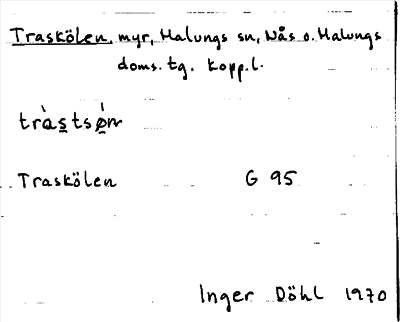 Traskölen, myr, Malungs sn, Nås o. Malungs
doms. tg. Kopp. l.
Traskölen G 95
Inger Döhl 1970